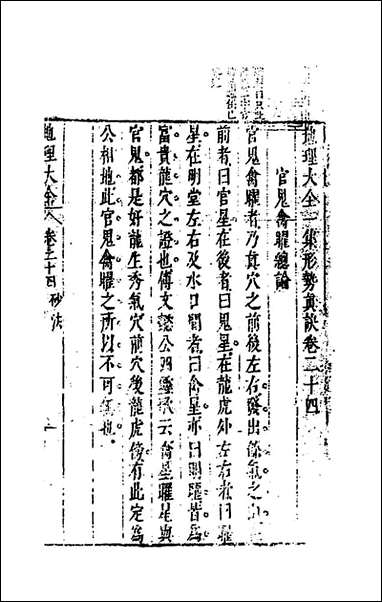 地理大全一集形勢真訣卷二十四
官鬼禽曜總論
官鬼禽曜者乃真穴之前後左右發出餘氣之山
前者曰官星在後者曰鬼星在龍虎外左右者曰曜
星在明堂左右及水口間者曰禽星亦曰明曜皆為
富貴龍穴之證也傅文懿公云禽星曜星與
官鬼都是好龍生秀氣穴前穴後龍虎傍有此定為
公相地此官鬼禽曜之所以不可也
地理大全 卷二十四砂法